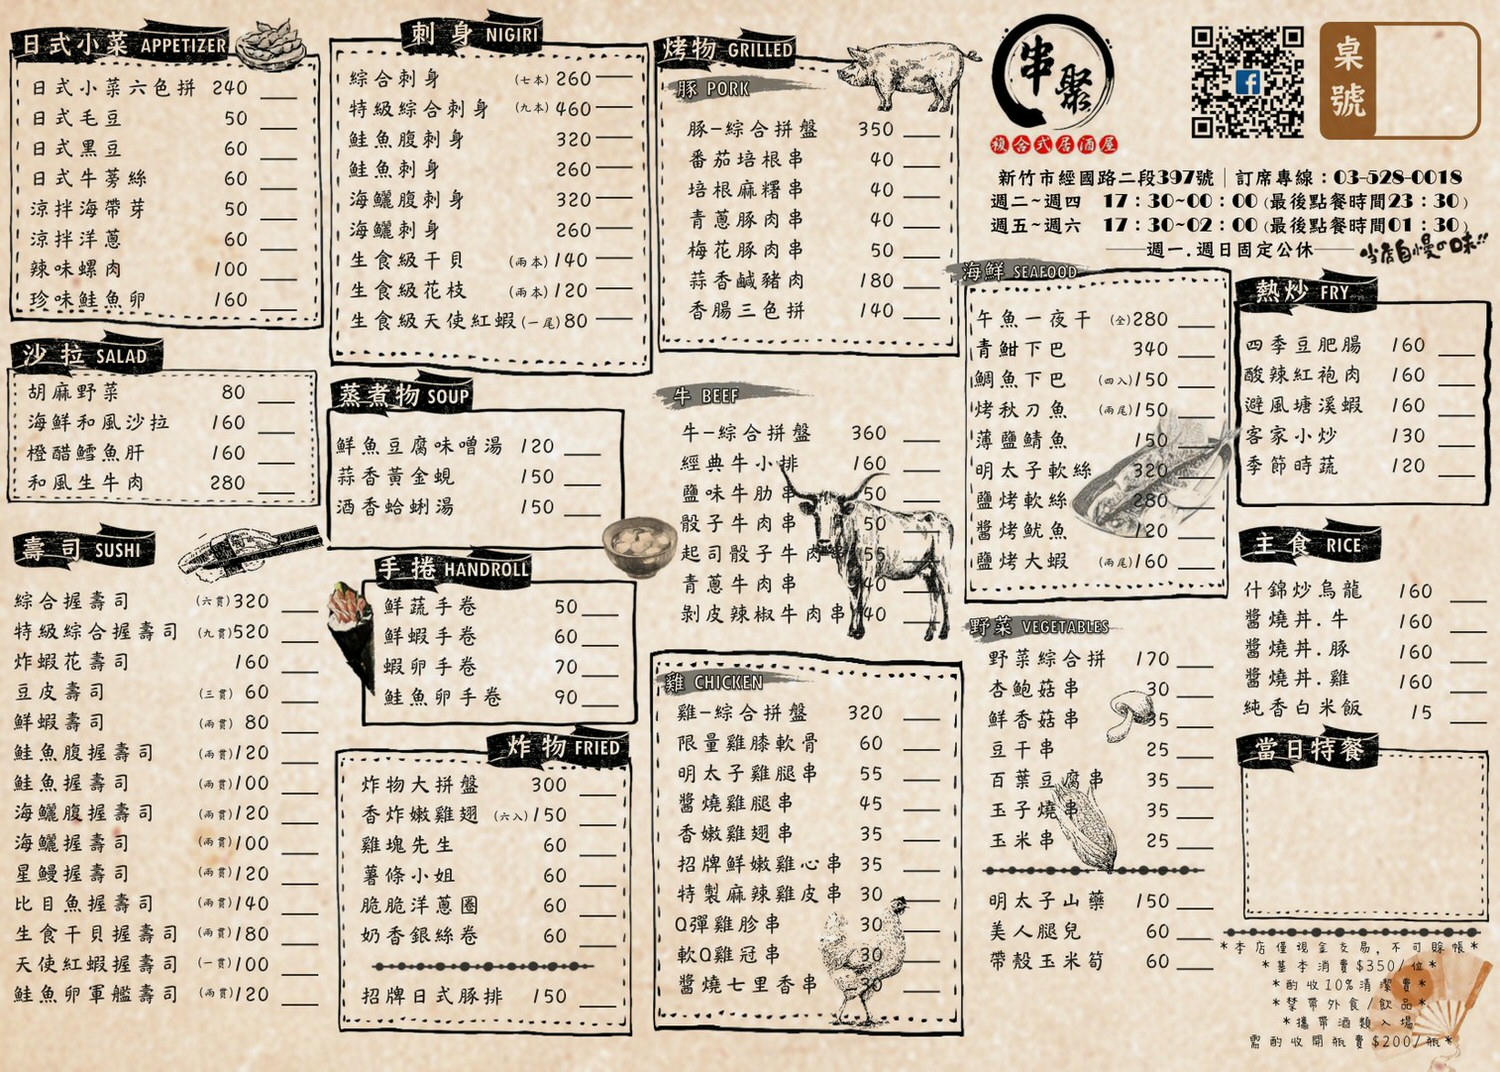 日式小菜 APPETIZER
日式小菜六色拼 240
日式毛豆 50
日式黑豆 60
日式牛蒡絲 60
涼拌海帶芽 50
涼拌洋蔥 60
辣味螺肉 100
珍味鮭魚卵 160
沙拉 SALAD
胡麻野菜 80
海鮮和風沙拉 160
橙醋鱈魚肝 160
和風生牛肉 280
壽司 SUSHI
綜合握壽司 (六貫)320
特級綜合握壽司 (九貫)520
炸蝦花壽司 160
豆皮壽司 (三貫) 60
鮮蝦壽司 (兩貫) 80
鮭魚腹握壽司 (兩貫)120
鮭魚握壽司 (兩貫)100
海鱺腹握壽司 (兩貫)120
海鱺握壽司 (兩貫)100
星鰻握壽司 (兩貫)120
比目魚握壽司 (兩貫)140
生食干貝握壽司 (兩貫)180
天使紅蝦握壽司 (一貫)100
鮭魚卵軍艦壽司 (兩貫)120
刺身 NIGIRI
綜合刺身 (七本) 260
特級綜合刺身 (九本) 460
鮭魚腹刺身 320
鮭魚刺身 260
海鱺腹刺身 320
海鱺刺身 260
生食級干貝 (兩本) 140
生食級花枝 (兩本) 120
生食級天使紅蝦(一尾)80
蒸煮物 SOUP
鮮魚豆腐味噌湯 120
蒜香黃金蜆 150
酒香蛤蜊湯 150
手捲 HANDROLL
鮮蔬手卷 50
鮮蝦手卷 60
蝦卵手卷 70
鮭魚卵手卷 90
炸物 FRIED
炸物大拼盤 300
香炸嫩雞翅 (六入)150
雞塊先生 60
薯條小姐 60
脆脆洋蔥圈 60
奶香銀絲卷 60
招牌日式豚排 150
烤物 GRILLED
豚 PORK
豚-綜合拼盤 350
番茄培根串 40
培根麻糬串 40
青蔥豚肉串 40
梅花豚肉串 50
蒜香鹹豬肉 180
香腸三色拼 140
牛 BEEF
牛-綜合拼盤 360
經典牛小排 160
鹽味牛肋串 50
骰子牛肉串 50
起司骰子牛肉串 55
青蔥牛肉串 40
剝皮辣椒牛肉串 40
雞 CHICKEN
雞-綜合拼盤 320
限量雞膝軟骨 60
明太子雞腿串 55
醬燒雞腿串 45
香嫩雞翅串 35
招牌鮮嫩雞心串 35
特製麻辣雞皮串 30
Q彈雞胗串 30
軟Q雞冠串 30
醬燒七里香串 30
串聚
複合式居酒屋
桌號
新竹市經國路二段397號｜訂席專線：03-528-0018
週二~週四 17：30~00：00 (最後點餐時間23：30)
週五~週六 17：30~02：00 (最後點餐時間01：30)
週一.週日固定公休
当店自慢の味!!
海鮮 SEAFOOD
午魚一夜干 (全)280
青魽下巴 340
鯛魚下巴 (四入)150
烤秋刀魚 (兩尾)150
薄鹽鯖魚 150
明太子軟絲 320
鹽烤軟絲 280
醬烤魷魚 120
鹽烤大蝦 (兩尾)160
野菜 VEGETABLES
野菜綜合拼 170
杏鮑菇串 30
鮮香菇串 35
豆干串 25
百葉豆腐串 35
玉子燒串 35
玉米串 25
明太子山藥 150
美人腿兒 60
帶殼玉米筍 60
熱炒 FRY
四季豆肥腸 160
酸辣紅袍肉 160
避風塘溪蝦 160
客家小炒 130
季節時蔬 120
主食 RICE
什錦炒烏龍 160
醬燒丼.牛 160
醬燒丼.豚 160
醬燒丼.雞 160
純香白米飯 15
當日特餐
*本店僅現金交易,不可賒帳*
*基本消費$350/位*
*酌收10%清潔費*
*禁帶外食/飲品*
*攜帶酒類入場
需酌收開瓶費$200/瓶*